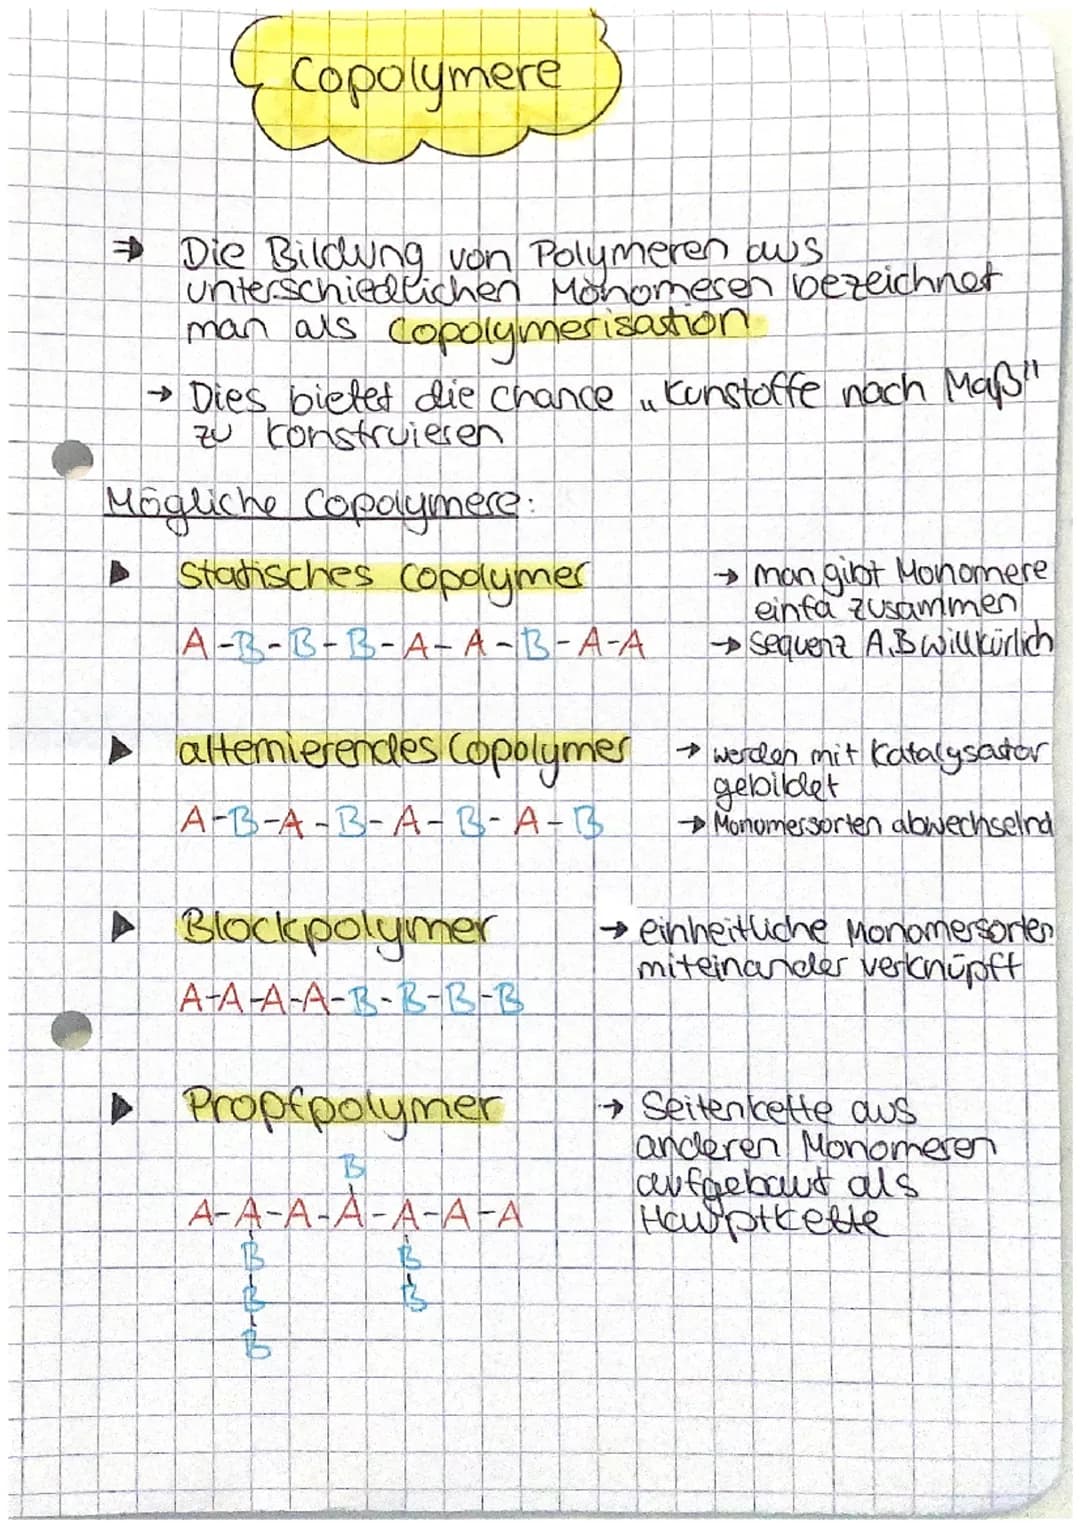 Copolymere
⇒ Die Bildung von Polymeren aus
unterschiedlichen Monomeren bezeichnet
man als Copolymerisation
→ Dies bietet die Chance „Kunstoffe nach Maß"
zu konstruieren
Mögliche Copolymere:
▶ Statisches Copolymer
→ man gibt Monomere
einfa zusammen
A-B-B-B-A-A-B-A-A
→ Sequenz A,B willkürlich
▶ alternierendes Copolymer
→ werden mit Katalysator
gebildet
A-B-A-B-A-B-A-B
→ Monomersorten abwechselnd
▶ Blockpolymer
→ einheitliche Monomersorten
miteinander verknüpft
A-A-A-A-B-B-B-B
▶ Propfpolymer
→ Seitenkette aus
anderen Monomeren
aufgebaut als
Hauptkette
B
A-A-A-A-A-A-A
B B
B B
B